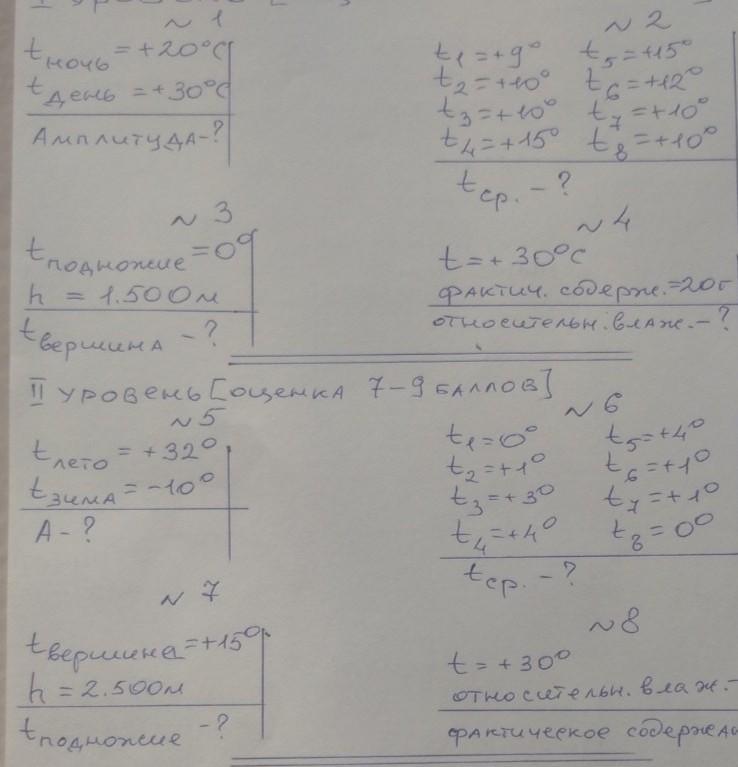 I уровень [
~ 1
t ночь = +20°C
t день = +30°C
Амплитуда - ?
~ 2
t1 = +9° t5 = +15°
t2 = +10° t6 = +12°
t3 = +10° t7 = +10°
t4 = +15° t8 = +10°
t ср. - ?
~ 3
t подножие = 0°
h = 1.500м
t вершина - ?
~ 4
t = + 30°C
фактич. содерж. = 20г
относительн. влаж. - ?
II уровень [оценка 7-9 баллов]
~ 5
t лето = +32°
t зима = -10°
А - ?
~ 6
t1 = 0° t5 = +4°
t2 = +1° t6 = +1°
t3 = +3° t7 = +1°
t4 = +4° t8 = 0°
t ср. - ?
~ 7
t вершина = +15°
h = 2.500м
t подножие - ?
~ 8
t = +30°
относительн. влаж. -
фактическое содержа